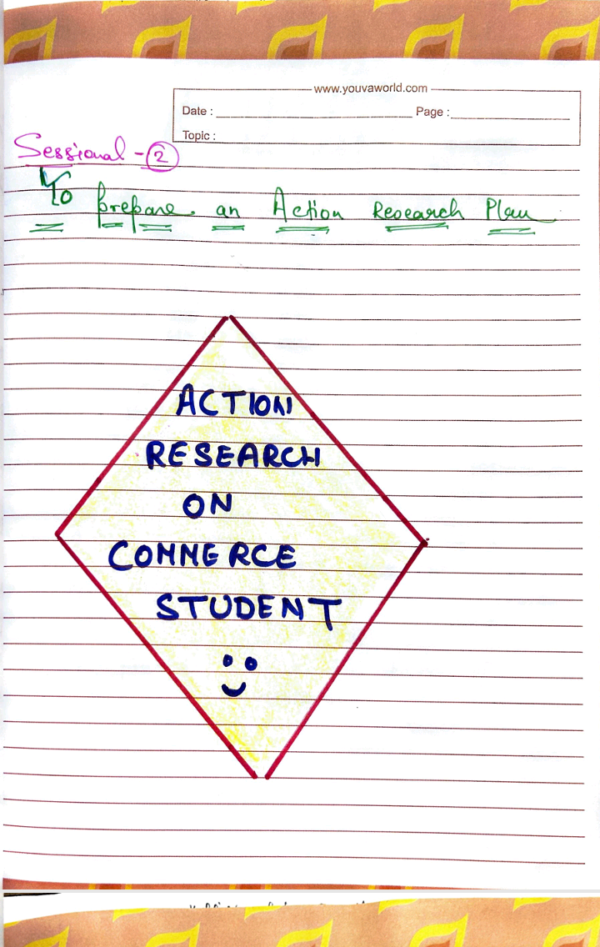 www.youvaworld.com
Date : Page :
Topic :
Sessional - 2
To prepare an Action Research Plan
ACTION
RESEARCH
ON
COMMERCE
STUDENT